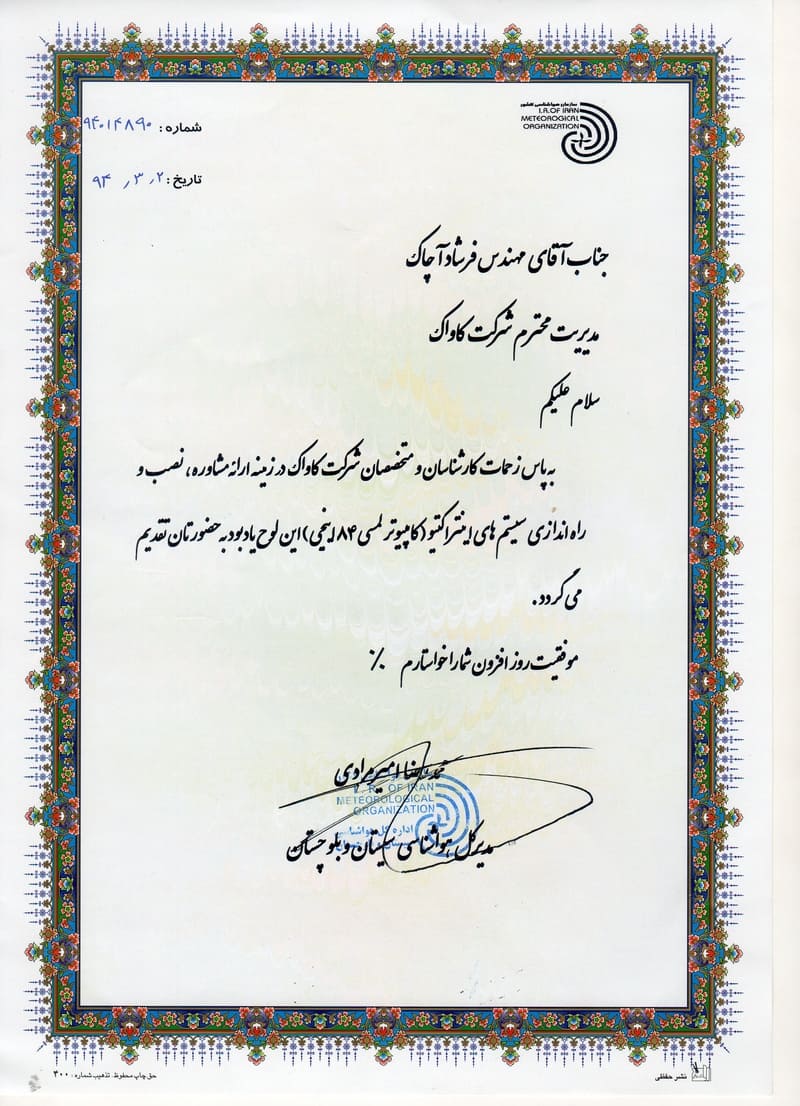 سازمان هواشناسی کشور
I.R.OF IRAN
METEOROLOGICAL
ORGANIZATION
شماره : ۹۴۰۱۴۸۹۰
تاریخ : ۹۴٫۳٫۲
جناب آقای مهندس فرشاد آچاک
مدیریت محترم شرکت کاواک
سلام علیکم
به پاس زحمات کارشناسان و متخصصان شرکت کاواک در زمینه ارائه مشاوره، نصب و
راه اندازی سیستم های اینتراکتیو (کامپیوتر لمسی ۸۴ اینچی) این لوح یادبود به حضورتان تقدیم
می گردد.
موفقیت روز افزون شما را خواستارم ٪
محمدرضا امیرمرادی
I. R. OF IRAN
METEOROLOGICAL
ORGANIZATION
اداره کل هواشناسی
مدیرکل هواشناسی سیستان و بلوچستان
نشر حفظی
حق چاپ محفوظ. تذهیب شماره : ۳۰۰